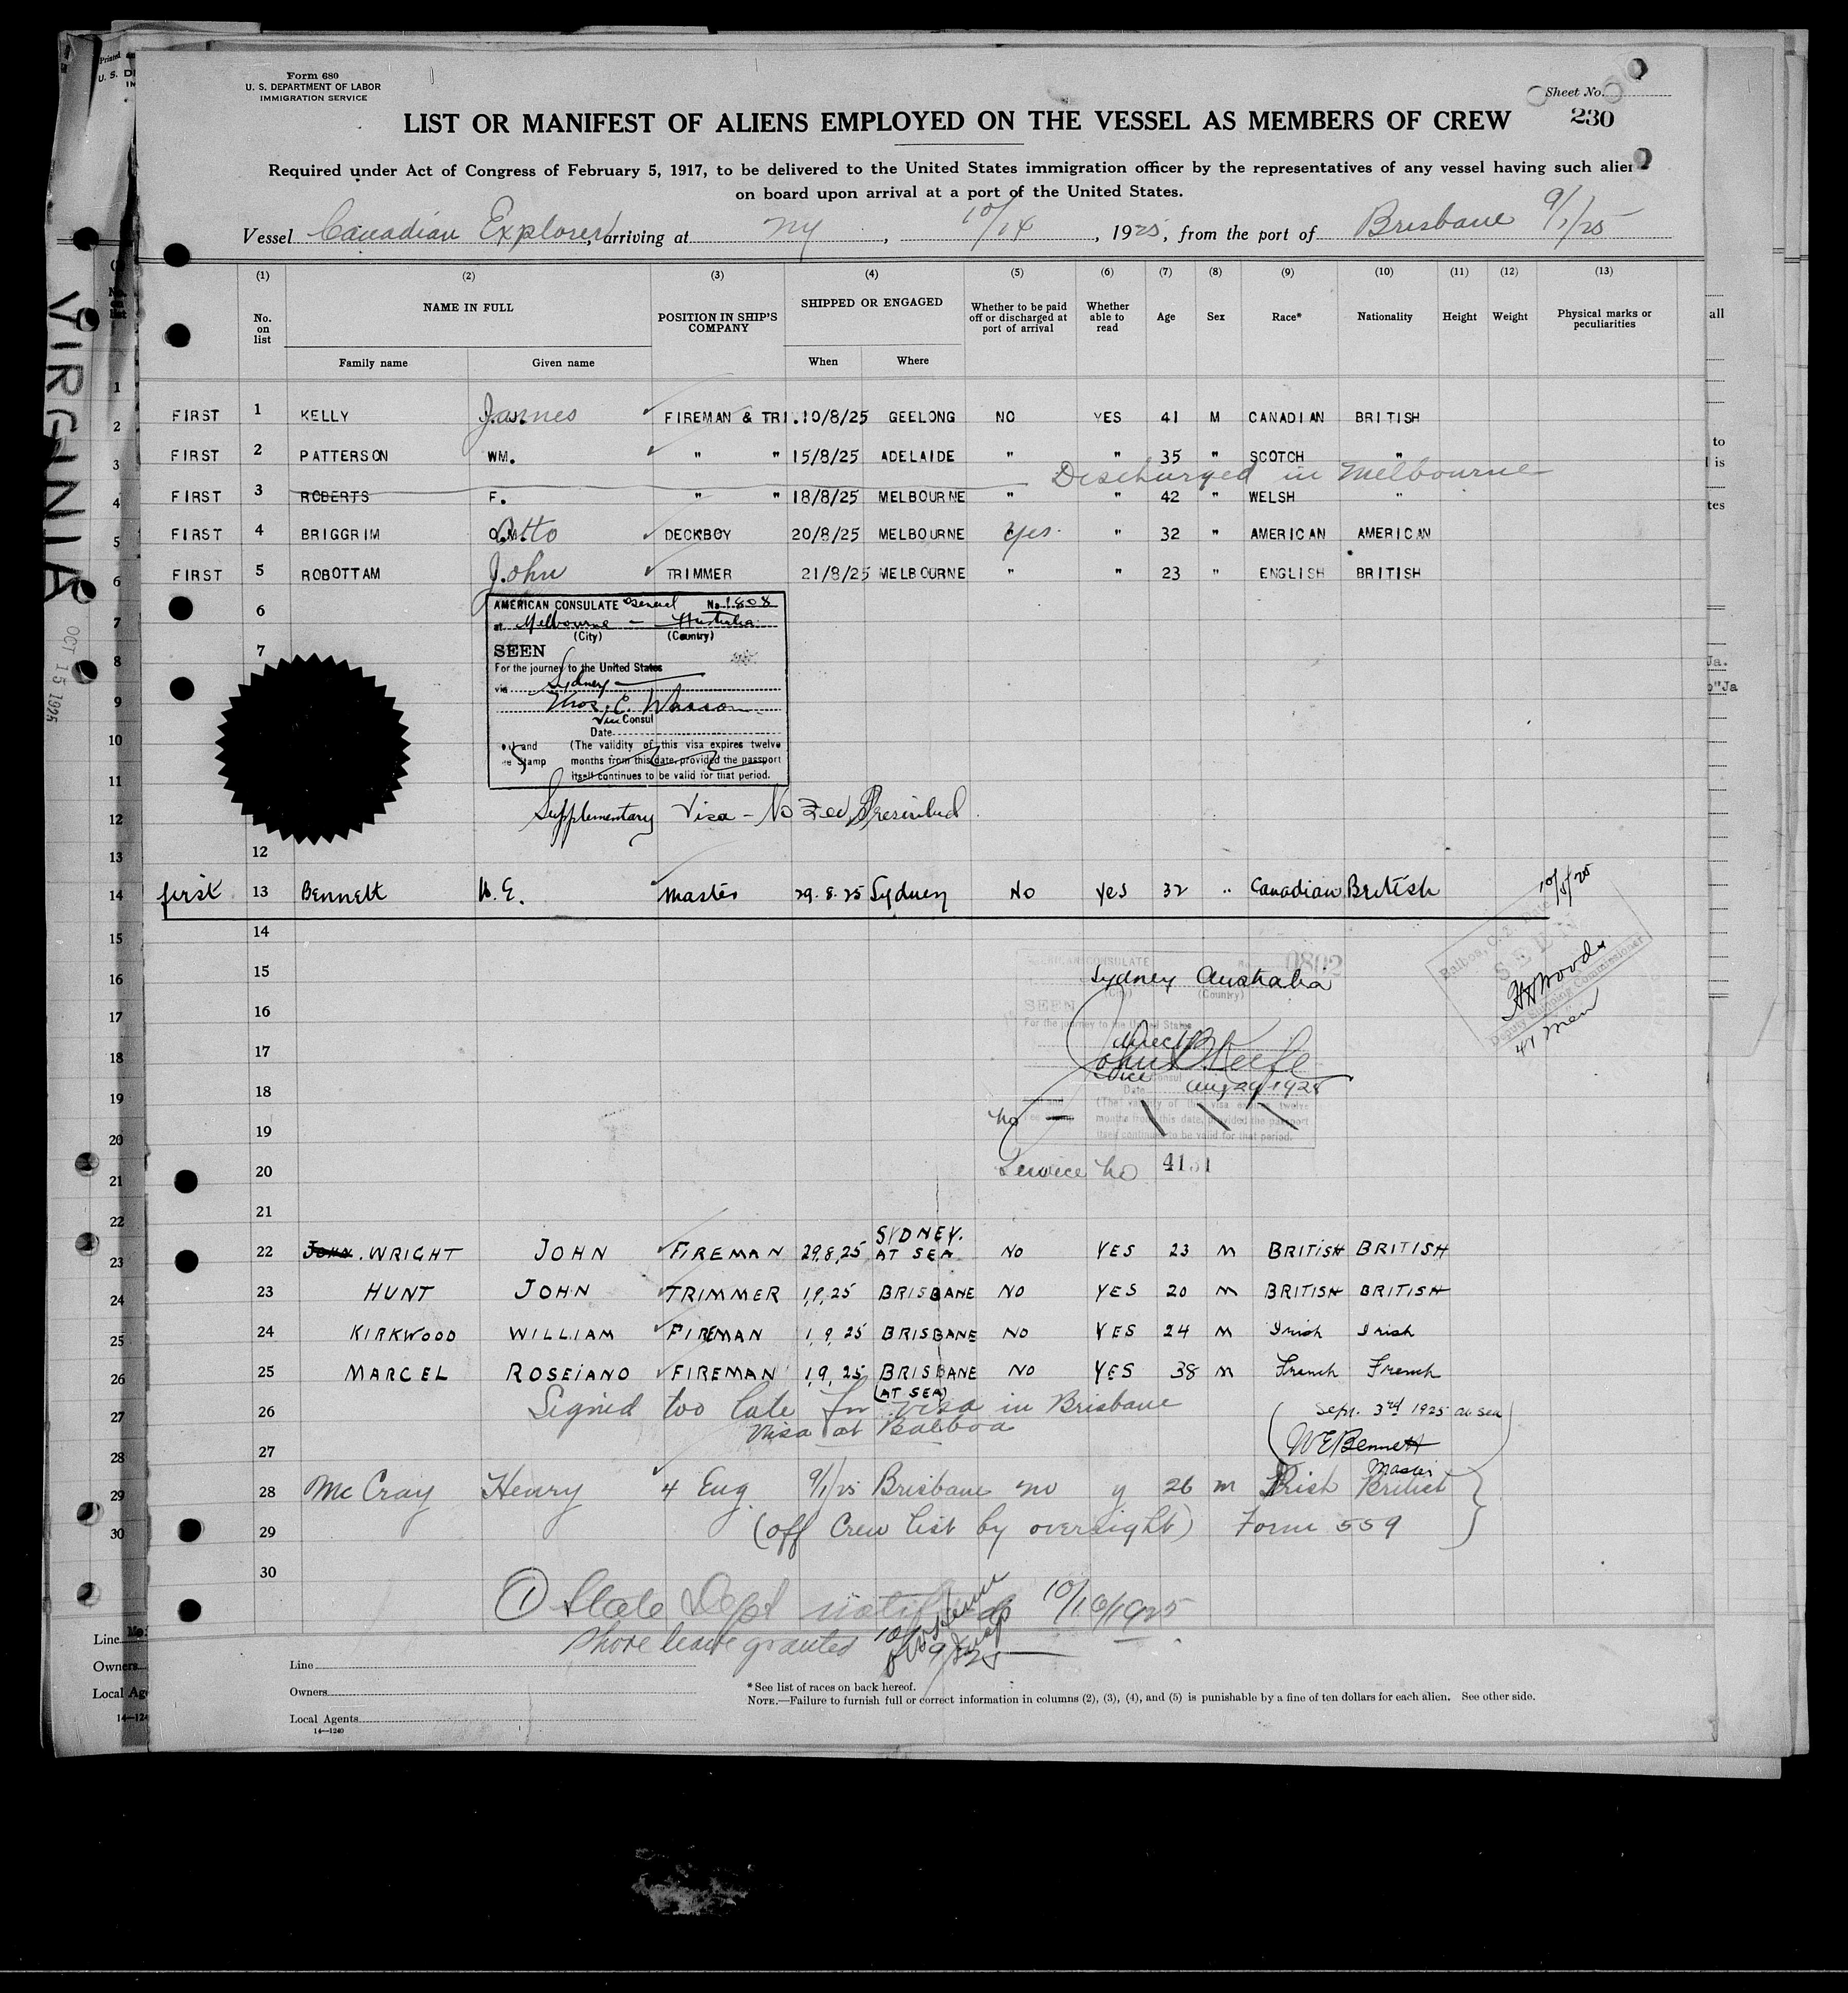 Form 680
U. S. DEPARTMENT OF LABOR
IMMIGRATION SERVICE
Sheet No.
230
LIST OR MANIFEST OF ALIENS EMPLOYED ON THE VESSEL AS MEMBERS OF CREW
Required under Act of Congress of February 5, 1917, to be delivered to the United States immigration officer by the representatives of any vessel having such alien
on board upon arrival at a port of the United States.
Vessel Canadian Explorer, arriving at NY, 10/14, 1925, from the port of Brisbane 9/1/25
(1) (2) (3) (4) (5) (6) (7) (8) (9) (10) (11) (12) (13)
No. on list NAME IN FULL POSITION IN SHIP'S COMPANY SHIPPED OR ENGAGED Whether to be paid off or discharged at port of arrival Whether able to read Age Sex Race* Nationality Height Weight Physical marks or peculiarities
Family name Given name When Where
FIRST 1 KELLY James FIREMAN & TRI. 10/8/25 GEELONG NO YES 41 M CANADIAN BRITISH
FIRST 2 PATTERSON WM. " " 15/8/25 ADELAIDE " " 35 " SCOTCH "
Discharged in Melbourne
FIRST 3 ROBERTS F. " " 18/8/25 MELBOURNE " " 42 " WELSH "
FIRST 4 BRIGGRIM Otto DECKBOY 20/8/25 MELBOURNE Yes. " 32 " AMERICAN AMERICAN
FIRST 5 ROBOTTAM John TRIMMER 21/8/25 MELBOURNE " " 23 " ENGLISH BRITISH
6
AMERICAN CONSULATE General No. 1808
at Melbourne - Australia
(City) (Country)
7
SEEN
For the journey to the United States
via Sydney
Thos. C. Wasson
Vice Consul
Date
(The validity of this visa expires twelve
Stamp months from this date, provided the passport
itself continues to be valid for that period.
Supplementary Visa - No Fee Prescribed
12
first 13 Bennett W. E. Master 29.8.25 Sydney No Yes 32 " Canadian British
10/5/25
14
Balboa, C. Z. Date
SEEN
HH Woods
Deputy Shipping Commissioner
47 men
15
AMERICAN CONSULATE No. 0802
Sydney Australia
(City) (Country)
16
SEEN
For the journey to the United States
17
direct
18
Vice Consul
Date Aug 29 1925
(The validity of this visa expires twelve
No
months from this date, provided the passport
19
itself continues to be valid for that period.
20
Service No 4131
21
22 JOHN. WRIGHT JOHN FIREMAN 29,8,25 SYDNEY. AT SEA NO YES 23 M BRITISH BRITISH
23 HUNT JOHN TRIMMER 1,9,25 BRISBANE NO YES 20 M BRITISH BRITISH
24 KIRKWOOD WILLIAM FIREMAN 1,9,25 BRISBANE NO YES 24 M Irish Irish
25 MARCEL ROSEIANO FIREMAN 1,9,25 BRISBANE NO YES 38 M French French
(AT SEA)
26 Signed too late for visa in Brisbane
Visa at Balboa
(Sept. 3rd 1925 at sea)
27
W E Bennett
Master
28 McCray Henry 4 Eng 9/1/25 Brisbane no y 26 m Irish British
29 (off Crew list by oversight) Form 559
30
① State Dept notified 10/16/1925
Shore leave granted
Line
Owners
Local Agents
14—1240
* See list of races on back hereof.
NOTE.—Failure to furnish full or correct information in columns (2), (3), (4), and (5) is punishable by a fine of ten dollars for each alien. See other side.
VIRGINIA
OCT 15 1925